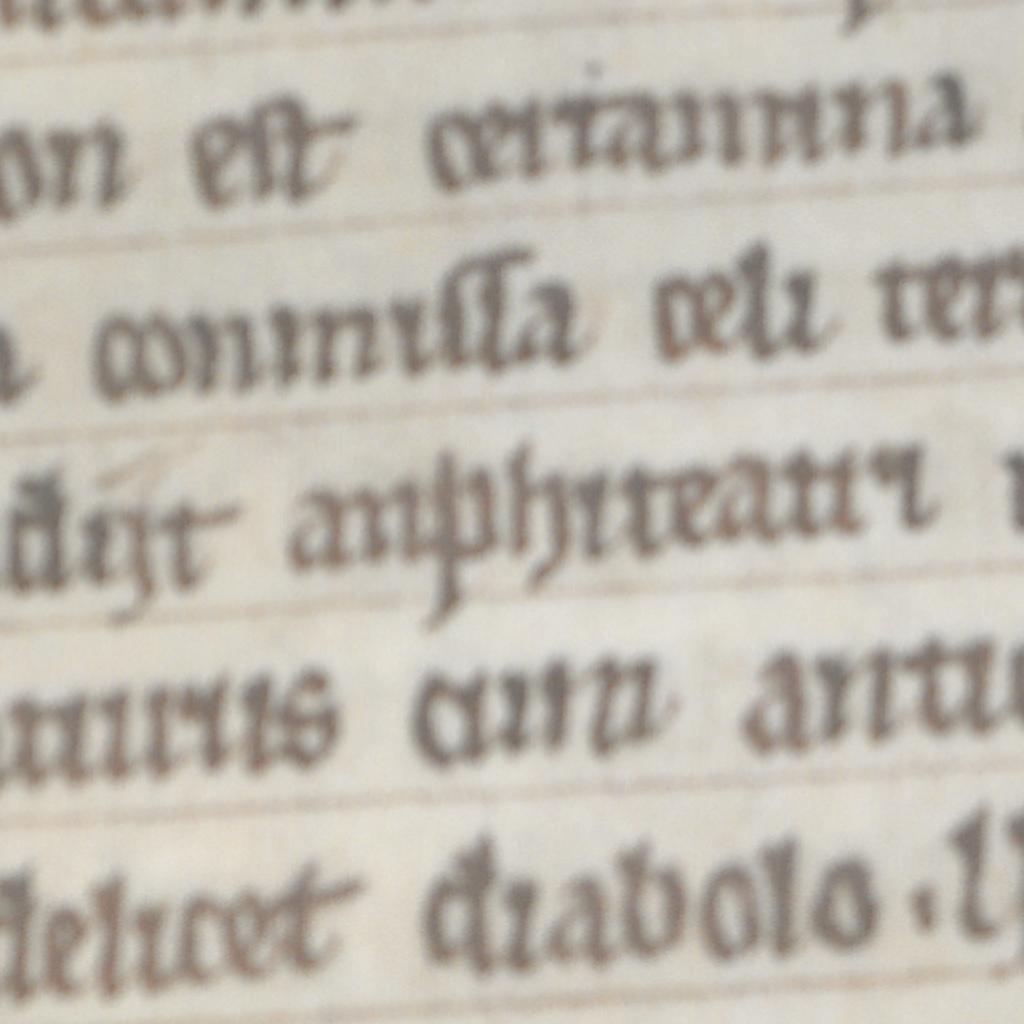 on est certamina
commissa celi terr
dijt amphiteatri
mirus cum antiq
delicet diabolo.